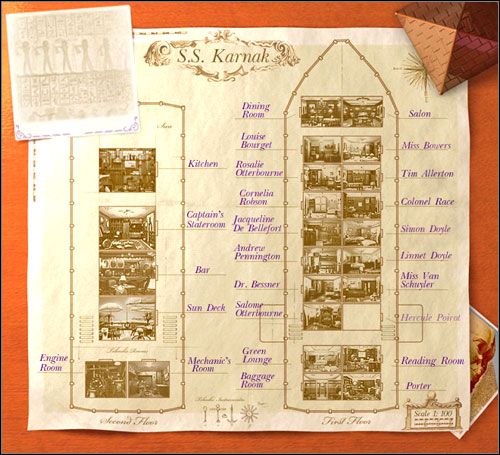 S.S. Karnak
Dining
Room
Salon
Louise
Bourget
Miss Bowers
Kitchen
Rosalie
Otterbourne
Tim Allerton
Cornelia
Robson
Colonel Race
Captain's
Stateroom
Jacqueline
De Bellefort
Simon Doyle
Andrew
Pennington
Linnet Doyle
Bar
Dr. Bessner
Miss Van
Schuyler
Sun Deck
Salome
Otterbourne
Hercule Poirot
Engine
Room
Mechanic's
Room
Green
Lounge
Reading Room
Baggage
Room
Porter
Second Floor
First Floor
Scale 1: 100